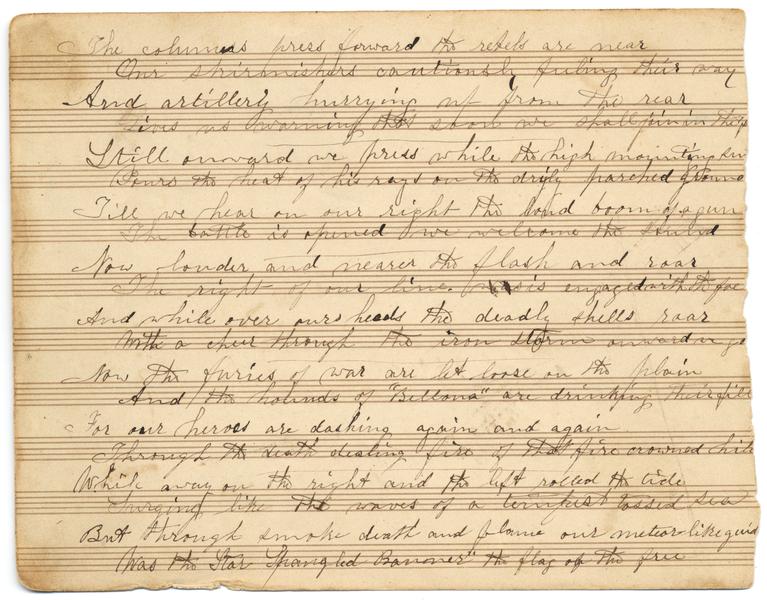 The columns press forward the rebels are near
Our skirmishers cautiously feeling their way
And artillery hurrying up from the rear
Gives us warning that soon we shall join in the
Still onward we press while the high mounting sun
Pours the heat of his rays on the dryly parched ground
Till we hear on our right the loud boom of a gun
The battle is opened we welcome the sound
Now louder and nearer the flash and roar
The right of our line is engaged with the foe
And while over our heads the deadly shells roar
With a cheer through the iron storm onward we go
Now the furies of war are let loose on the plain
And the hounds of "Bellona" are drinking their fill
For our heroes are dashing again and again
Through the death dealing fire of that fire crowned hill
While away on the right and the left rolled the tide
Surging like the waves of a tempest tossed sea
But through smoke death and flame our meteor-like guid
Was the Star Spangled Banner" the flag of the free